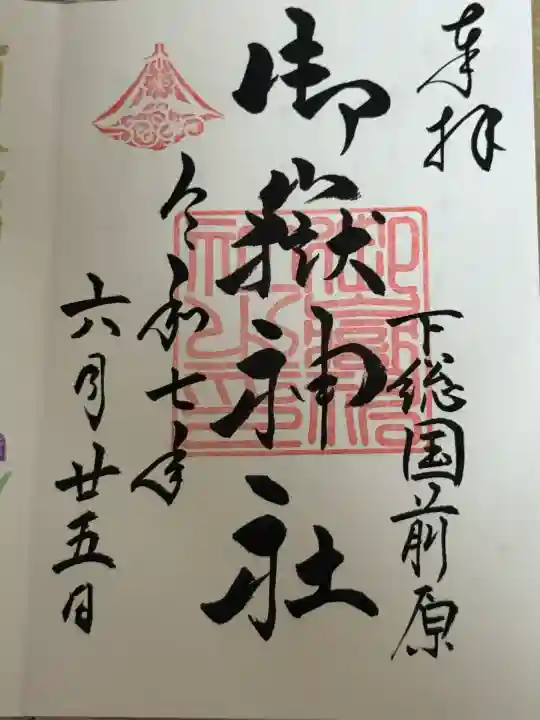 奉拝
下総国前原
御嶽神社
令和七年
六月廿五日